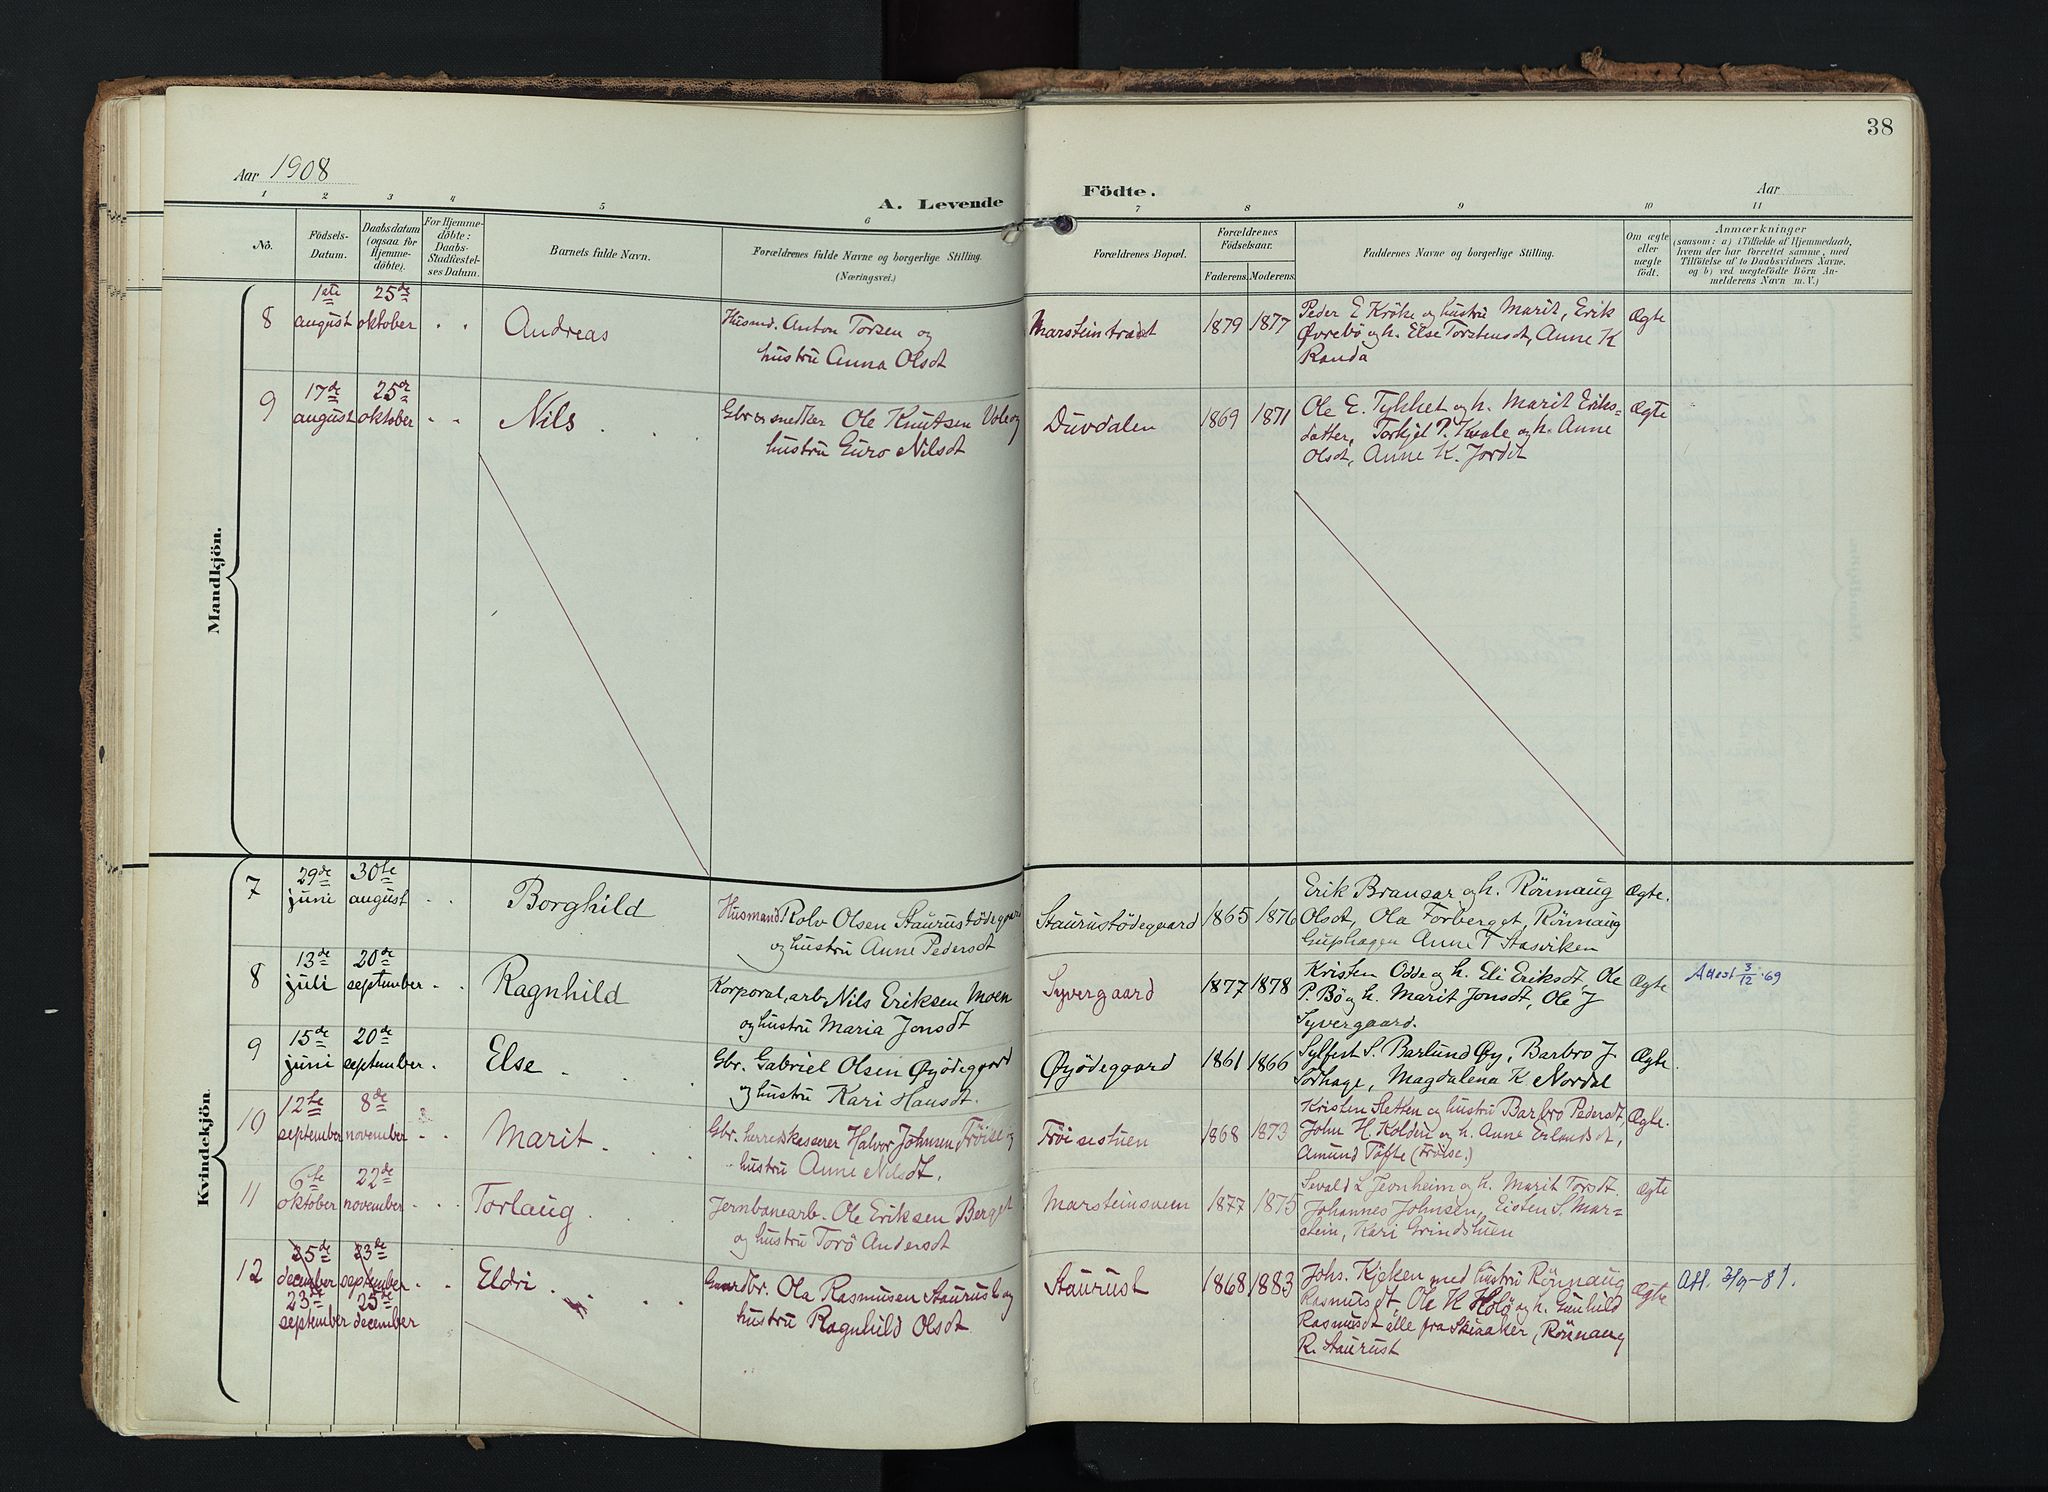 38
Aar 1908
A. Levende Födte.
Aar
1 2 3 4 5 6 7 8 9 10 11
Nö.
Födsels-Datum.
Daabsdatum (ogsaa for Hjemme-döbte).
For Hjemme-döbte: Daabs-Stadfæstel-ses Datum.
Barnets fulde Navn.
Forældrenes fulde Navne og borgerlige Stilling.
(Næringsvei.)
Forældrenes Bopæl.
Forældrenes Födselsaar.
Faderens. Moderens.
Faddernes Navne og borgerlige Stilling.
Om ægte eller uægte födt.
Anmærkninger
(saasom: a) i Tilfælde af Hjemmedaab, hvem der har forrettet samme, med Tilföielse af to Daabsvidners Navne, og b) ved uægtefödte Börn An-melderens Navn m. V.)
Mandkjön.
8 1ste august 25de oktober Andreas
Husmd. Anton Torsen og
hustru Anna Olsdt
Marsteintrædet 1879 1877
Peder E Kröke og hustru Marit, Erik
Øvrebö og h. Else Torstensdt, Anne K
Randa
Ægte
9 17de august 25de oktober Nils
Gbr og snetker Ole Knutsen Vole og
hustru Guro Nilsdt
Duvdalen 1869 1871
Ole E. Tykket og h. Marit Eriks=
datter, Torkjel P. Kvale og h. Anne
Olsdt, Anne K. Jordet
Ægte
Kvindekjön.
7 29de juni 30te august Borghild
Husmand Rolv Olsen Staurustödegaard
og hustru Anne Pedersdt
Staurustödegaard 1865 1876
Erik Bransar og h. Rönnaug
Olsdt, Ola Forberget, Rönnaug
Guphagen Anne T Stasviken
Ægte.
8 13de juli 20de september Ragnhild
Korporal, arb Nils Eriksen Moen
og hustru Maria Jonsdt
Syvergaard 1877 1878
Kristen Odde og h. Eli Eriksdt, Ole
P. Bö og h. Marit Jonsdt, Ole J
Syvergaard.
Ægte
Attest 3/12 69
9 15de juni 20de september Else
Gbr. Gabriel Olsen Øyödegaard
og hustru Kari Hansdt.
Øyödegaard 1861 1866
Sylfest S. Barlund Øy, Barbro J
Sorhage, Magdalena K Nordal
Ægte.
10 12te september 8de november Marit
Gbr. herredskasserer Halvor Johnsen Tröise og
hustru Anne Nilsdt.
Tröisestuen 1868 1873
Kristen Sletten og hustru Barbro Pedersdt,
John H Kolden og h. Anne Erlandsdt,
Amund Töfte (Tröise.)
Ægte.
11 6te oktober 22de november Torlaug
Jernbanearb. Ole Eriksen Berget
og hustru Torö Andersdt
Marsteinsveen 1877 1875
Sevald L Jevnheim og h. Marit Torsdt.
Johannes Johnsen, Eisten S. Mar=
stein, Kari Grindstuen
Ægte
12 25de december 23de september
23de september 25de december
Eldri
Gaardbr. Ola Rasmusen Staurust og
hustru Ragnhild Olsdt.
Staurust 1868 1883
Johs. Kjeken med hustru Rönnaug
Rasmusdt, Ole K Holö og h. Gunhild
Rasmusdt alle fra Skiaaker, Rönnaug
R. Staurust
Ægte
Att. 3/9-81.